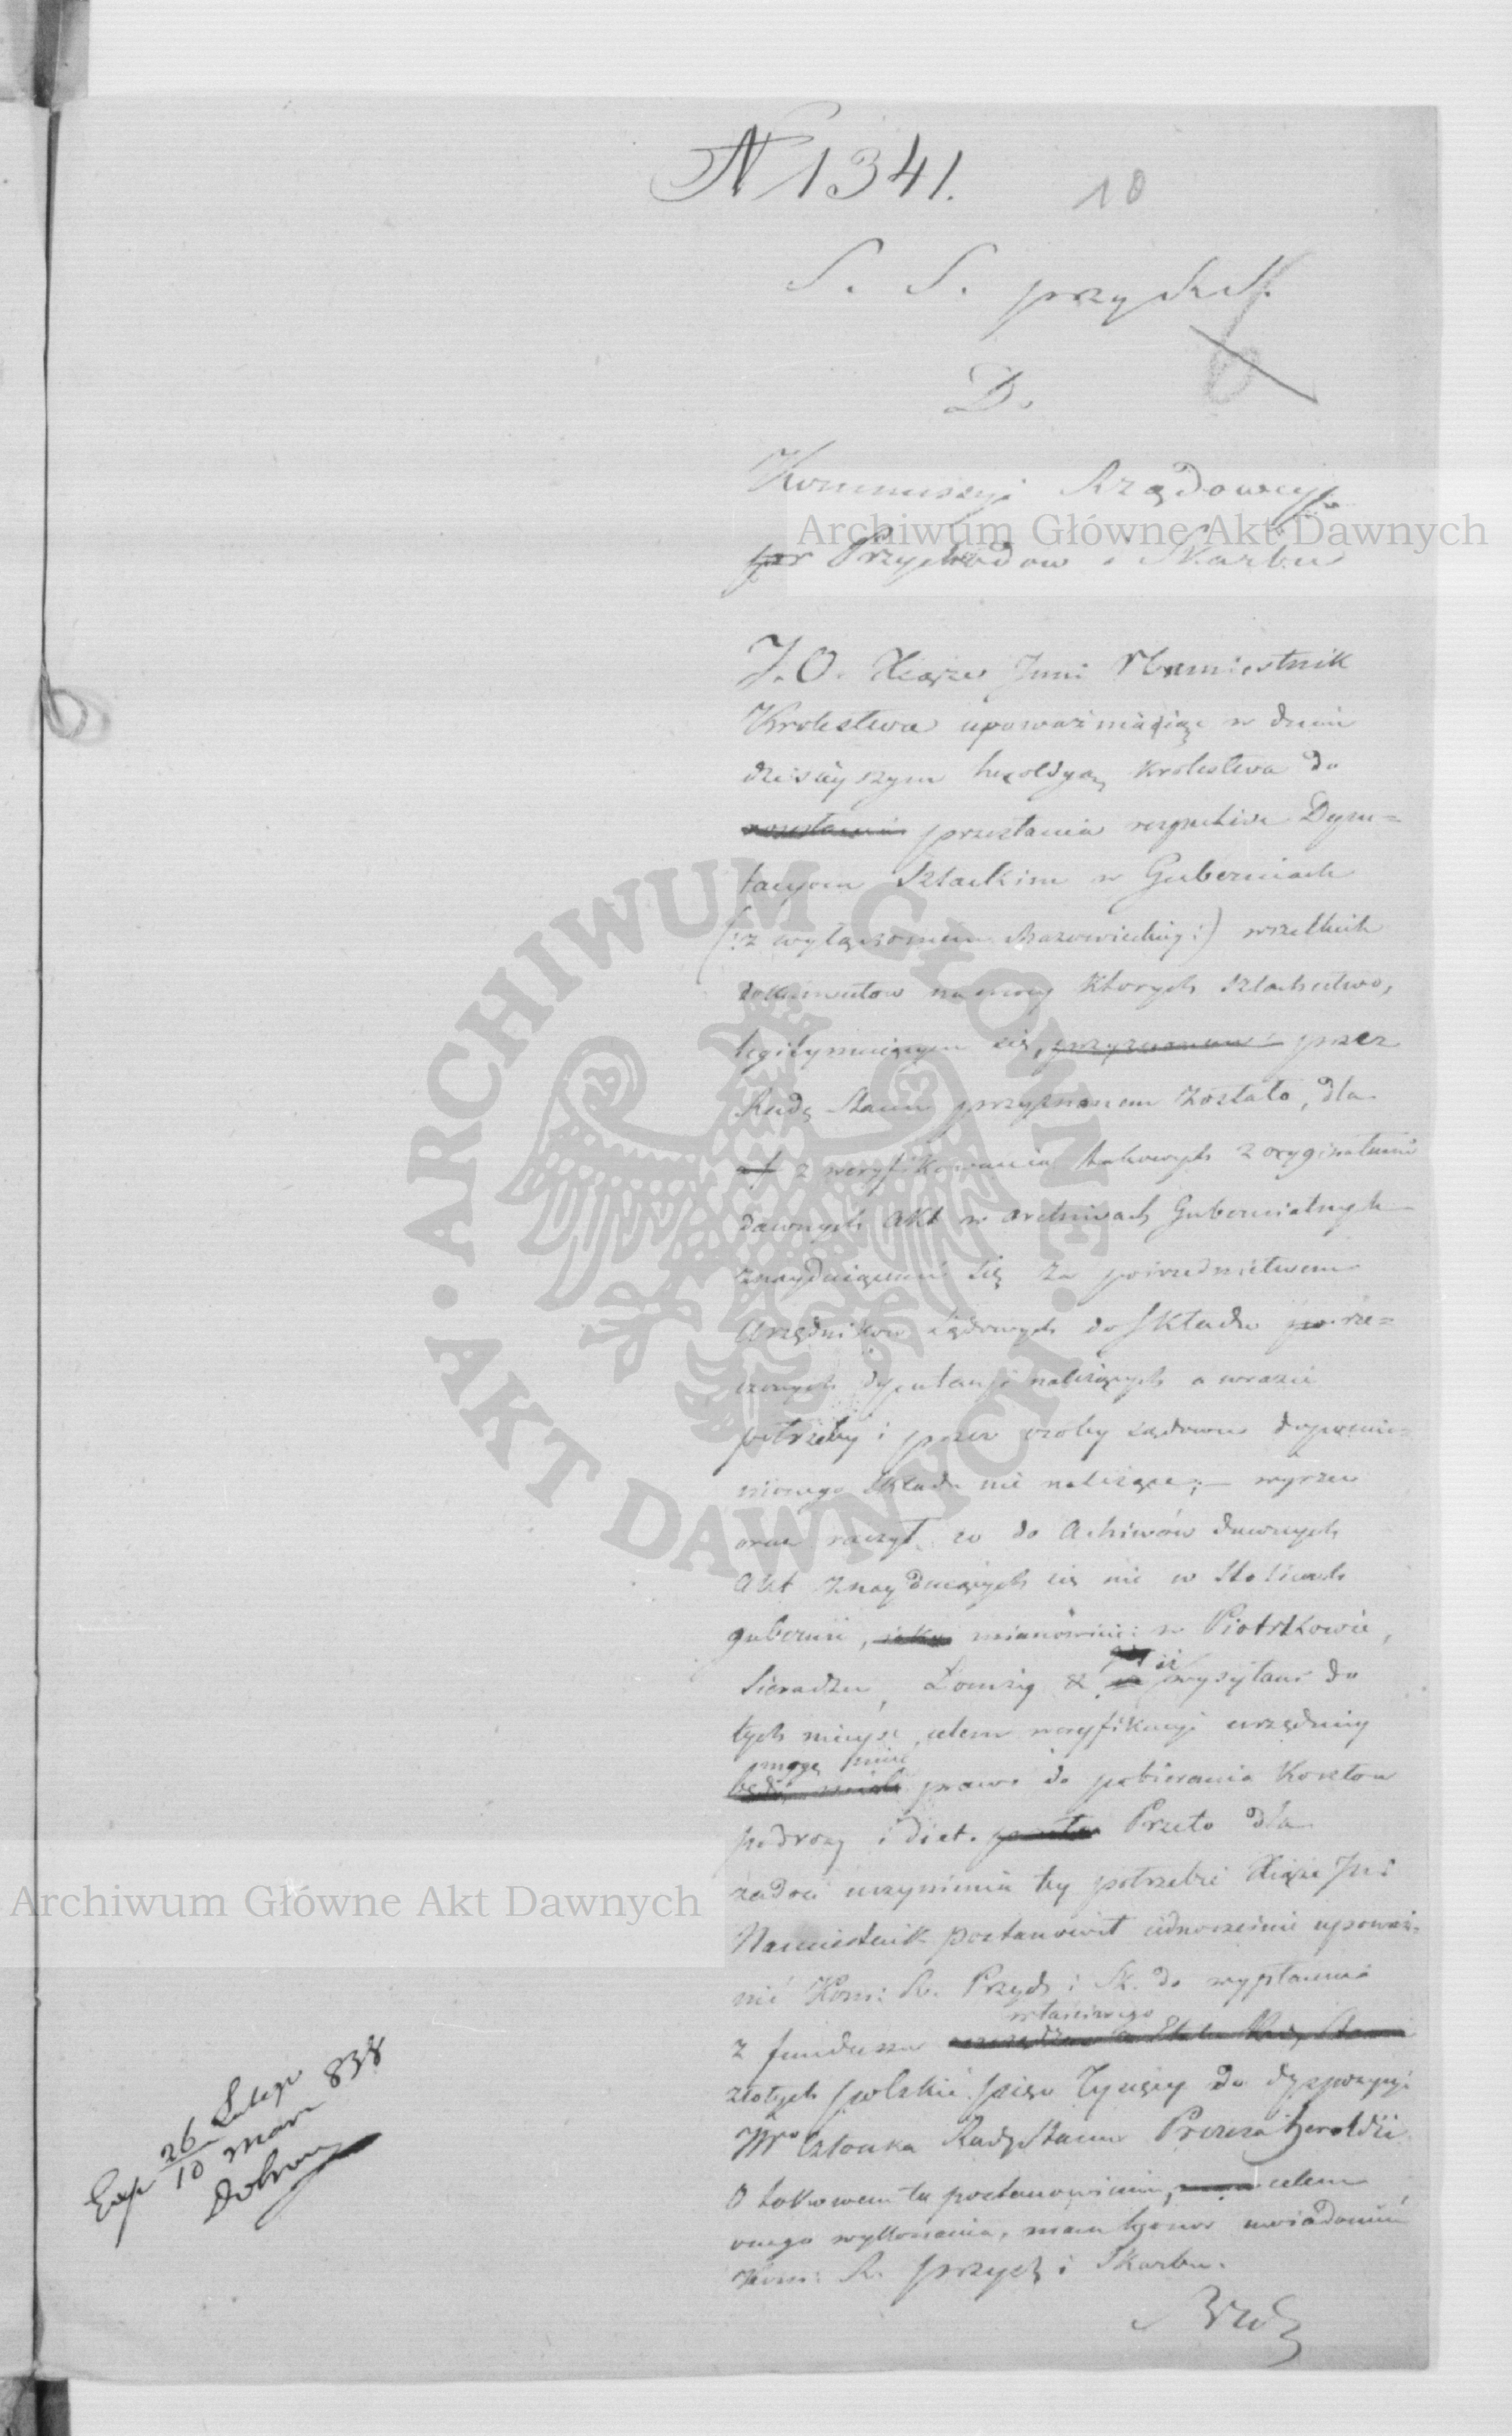 N 1341.
10
S. S. przy R. S.
D.
Kommissyi Rządowey
Przychodow i Skarbu
Archiwum Główne Akt Dawnych
J. O. Xiąże Jmci Namiestnik
Krolestwa upoważniaiąc w dniu
dzisieyszym heroldyą Krolestwa do
przesłania respective Depu=
tacyom Szlachim w Guberniach
(: z wyłączeniem Mazowieckiey :) wszelkich
dokumentow na mocy ktorych szlachectwo,
legitymuiącym się, przez
Radę Stanu przyznanem zostało, dla
zweryfikowania takowych z oryginałami
dawnych Akt w archivach Gubernialnych
znayduiącemi się za posrednictwem
Urzędnikow Sądowych do składu po rze=
czonych deputacyi należących a w razie
potrzeby i przez osoby sądowe do pomie=
nionego składu nie należące; — wyrzec
oraz raczył, co do Achiwów dawnych
Akt znayduiących się nie w stolicach
gubernii, mianowicie: w Piotrkowie,
Sieradzu, Łomży & iż wysyłani do
tych mieysc celem weryfikacyi urzędnicy
mogą mieć
prawo do pobierania Kosztow
podroży i diet. Przeto dla
zadosć uczynienia tey potrzebie Xiąże Jmć
Namiestnik postanowił iednocześnie upoważ=
nić Kom: R. Przych: i Sk. do wypłacenia
właściwego
z funduszu
złotych polskich pięć Tysięcy do dyspozycyi
JWo Członka Rady Stanu Prezesa heroldii
O takowem tu postanowieniu, celem
onego wykonania, mam honor uwiadomić
Kom: R. przych i Skarbu.
Archiwum Główne Akt Dawnych
Exp 26 Lutego
10 Marc 838
ARCHIWUM GŁÓWNE
AKT DAWNYCH